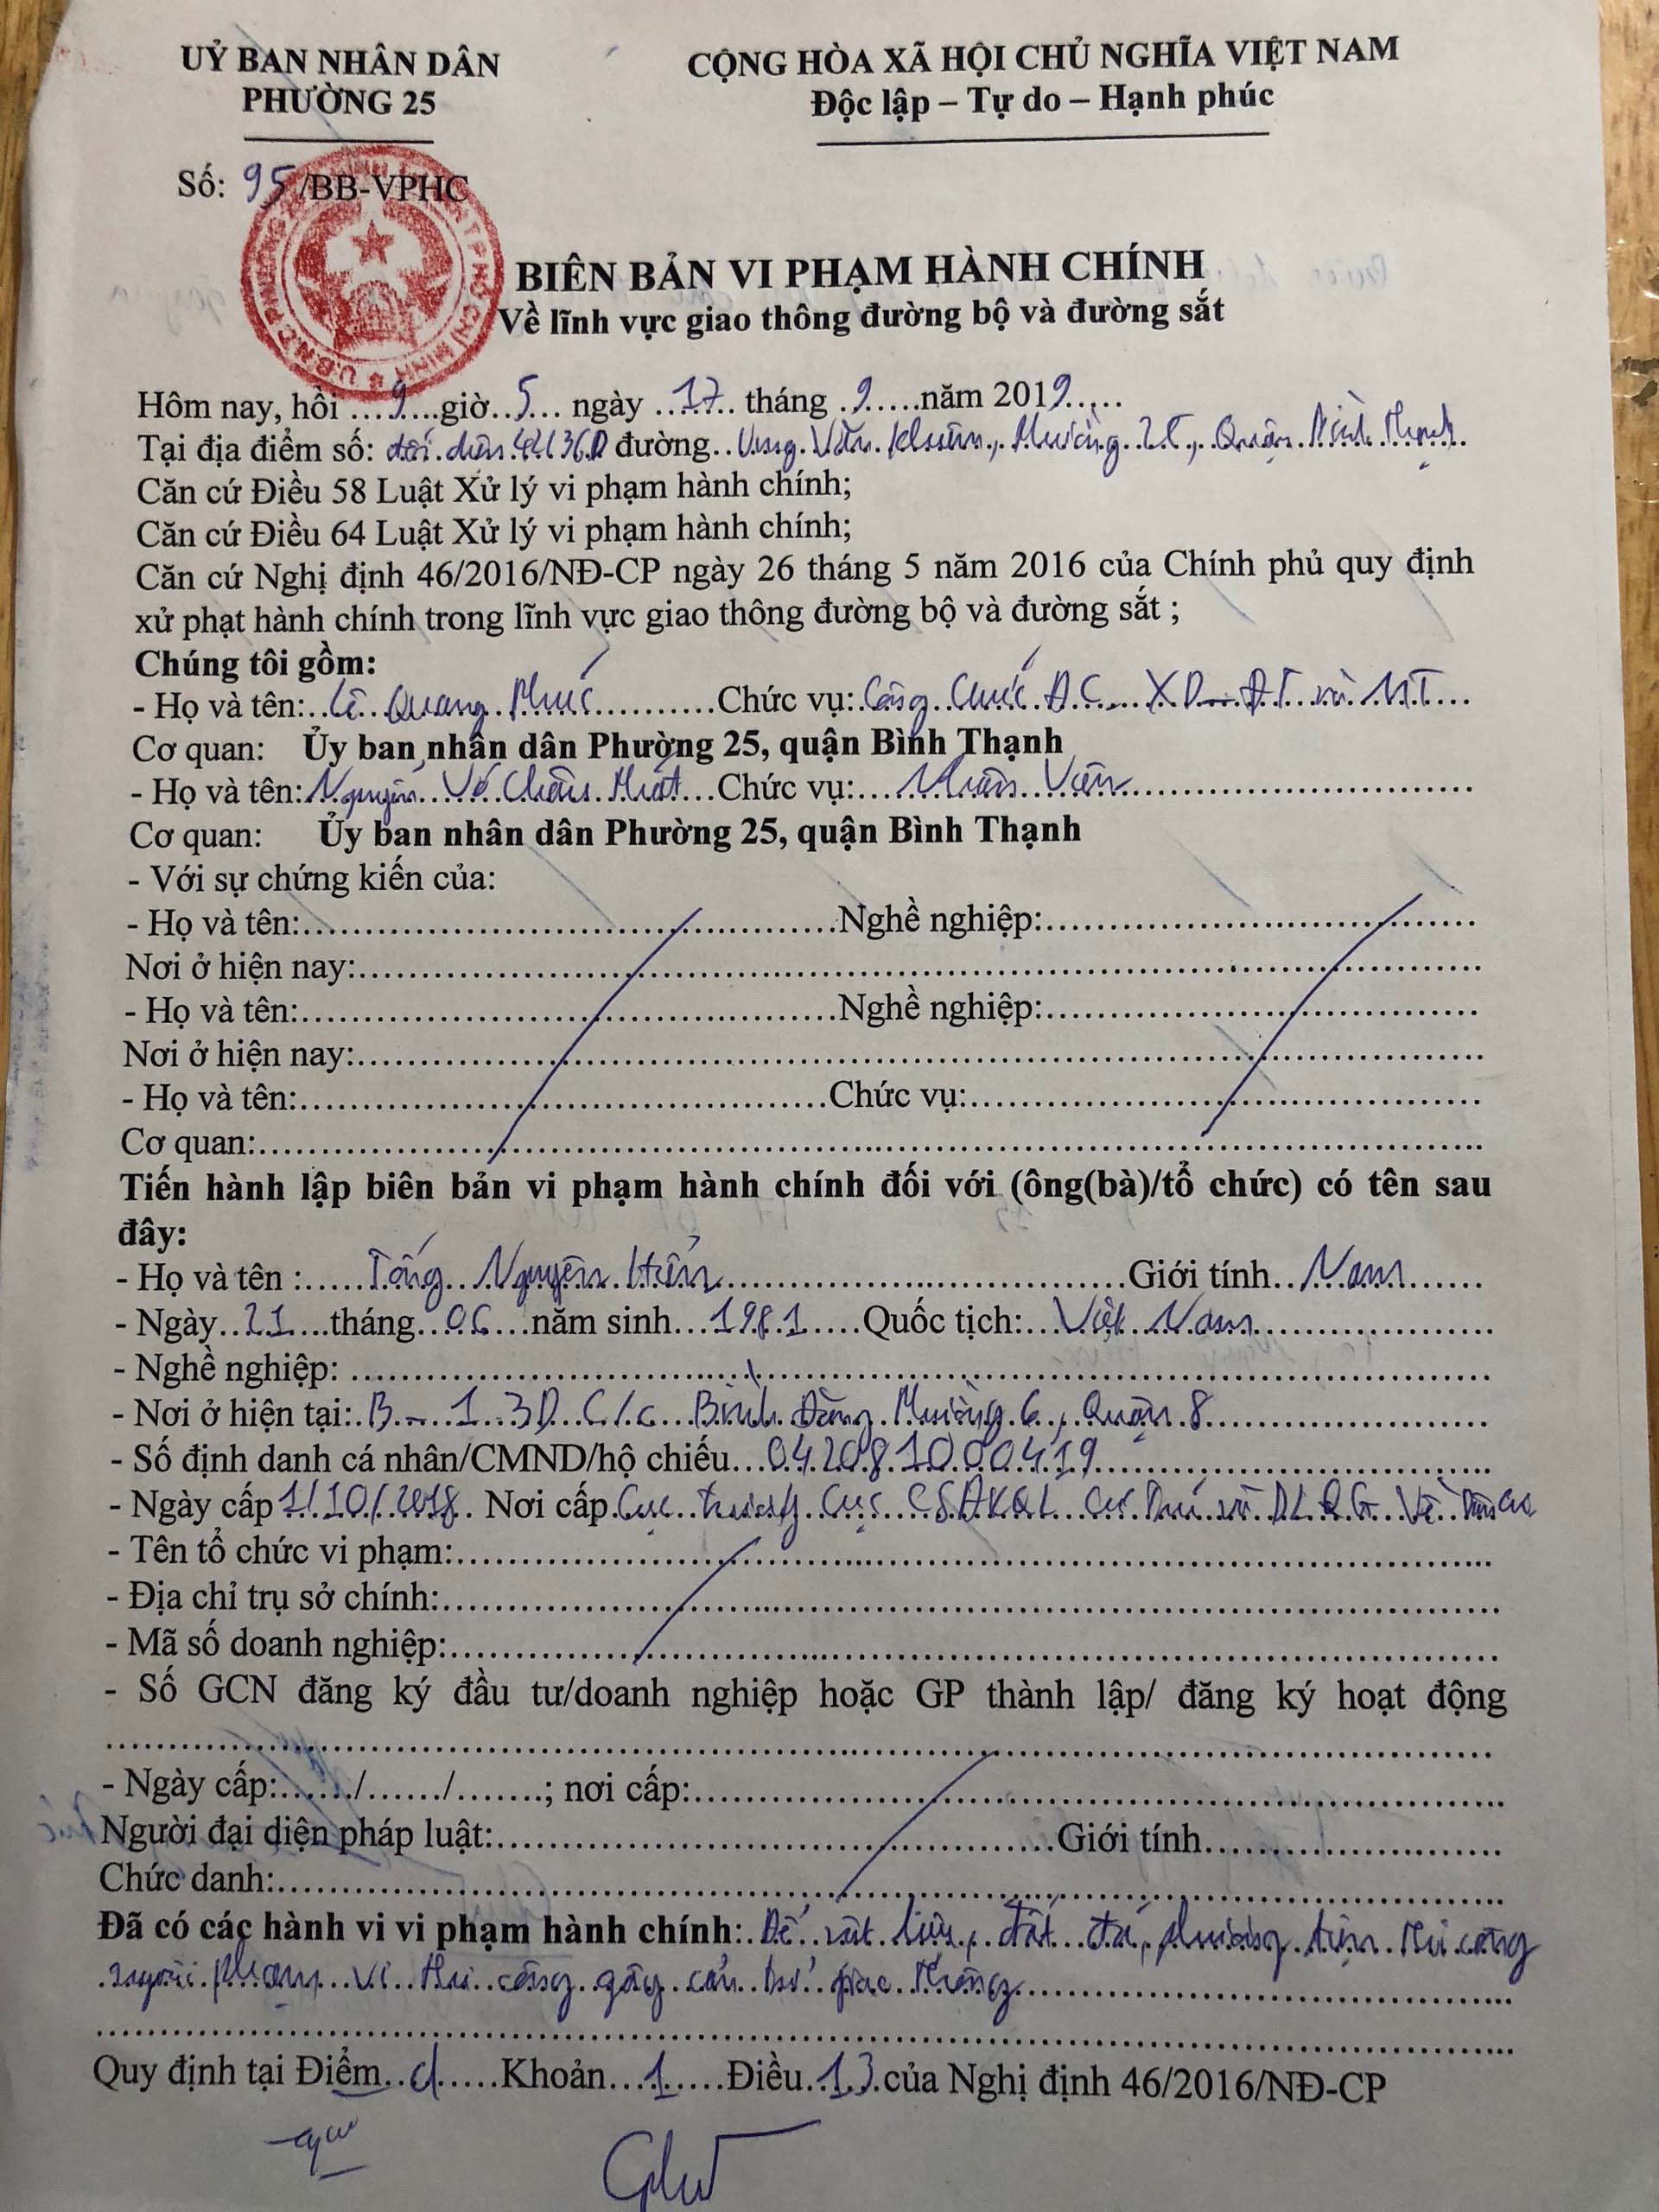 UỶ BAN NHÂN DÂN
PHƯỜNG 25
CỘNG HÒA XÃ HỘI CHỦ NGHĨA VIỆT NAM
Độc lập – Tự do – Hạnh phúc
Số: 95/BB-VPHC
BIÊN BẢN VI PHẠM HÀNH CHÍNH
Về lĩnh vực giao thông đường bộ và đường sắt
Hôm nay, hồi ...9....giờ..5... ngày ..17.. tháng .9.....năm 2019.....
Tại địa điểm số: đối diện đường..Ung.Văn.Khiêm.,.Phường.25.,..Quận.Bình.Thạnh.
Căn cứ Điều 58 Luật Xử lý vi phạm hành chính;
Căn cứ Điều 64 Luật Xử lý vi phạm hành chính;
Căn cứ Nghị định 46/2016/NĐ-CP ngày 26 tháng 5 năm 2016 của Chính phủ quy định
xử phạt hành chính trong lĩnh vực giao thông đường bộ và đường sắt ;
Chúng tôi gồm:
- Họ và tên:..Lê..Quang..Phúc..........Chức vụ:.Công..Chức..ĐC...XD...ĐT.và.MT...
Cơ quan: Ủy ban nhân dân Phường 25, quận Bình Thạnh
- Họ và tên:.Nguyễn..Võ.Chấn.Phát...Chức vụ:....Nhân..Viên..........
Cơ quan: Ủy ban nhân dân Phường 25, quận Bình Thạnh
- Với sự chứng kiến của:
- Họ và tên:..........Nghề nghiệp:..........
Nơi ở hiện nay:..........
- Họ và tên:..........Nghề nghiệp:..........
Nơi ở hiện nay:..........
- Họ và tên:..........Chức vụ:..........
Cơ quan:..........
Tiến hành lập biên bản vi phạm hành chính đối với (ông(bà)/tổ chức) có tên sau
đây:
- Họ và tên :.....Tống..Nguyên.Hiển..........Giới tính..Nam......
- Ngày..21....tháng...06...năm sinh...1981.....Quốc tịch:...Việt..Nam..........
- Nghề nghiệp: ..........
- Nơi ở hiện tại:.B...1.3D..C/c..Bình.Đăng.Phường.6.,.Quận.8..........
- Số định danh cá nhân/CMND/hộ chiếu...042081000419..........
- Ngày cấp 1/10/2018. Nơi cấp.Cục..trưởng.Cục..CSĐKQL..Cư.Trú.và.DLQG..Về Dân cư
- Tên tổ chức vi phạm:..........
- Địa chỉ trụ sở chính:..........
- Mã số doanh nghiệp:..........
- Số GCN đăng ký đầu tư/doanh nghiệp hoặc GP thành lập/ đăng ký hoạt động
..........
- Ngày cấp:....../....../.......; nơi cấp:..........
Người đại diện pháp luật:..........Giới tính..........
Chức danh:..........
Đã có các hành vi vi phạm hành chính:.Để..vật.liệu.,.đất..đá.,.phương.tiện.thi.công
.ngoài.phạm..vi.thi.công.gây.cản.trở.giao.thông..........
..........
Quy định tại Điểm..d.....Khoản...1.....Điều.13.của Nghị định 46/2016/NĐ-CP